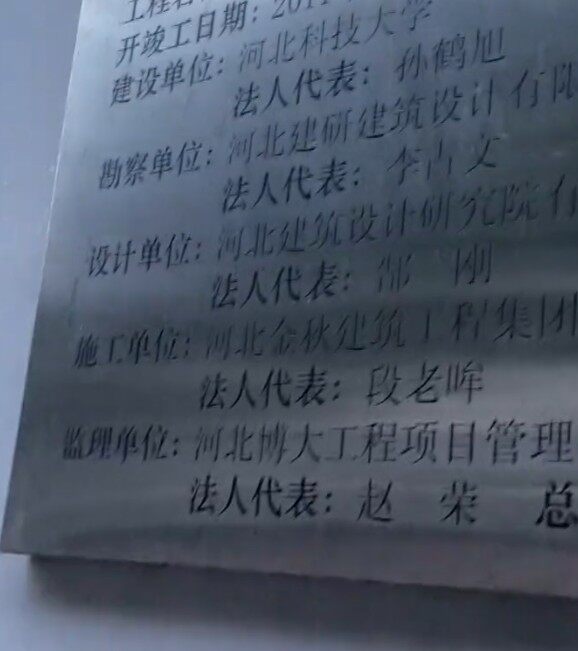 工程名
开竣工日期：2011
建设单位：河北科技大学
法人代表：孙鹤旭
勘察单位：河北建研建筑设计有限
法人代表：李占文
设计单位：河北建筑设计研究院有
法人代表：郜 刚
施工单位：河北金秋建筑工程集团
法人代表：段老哞
监理单位：河北博大工程项目管理
法人代表：赵 荣 总